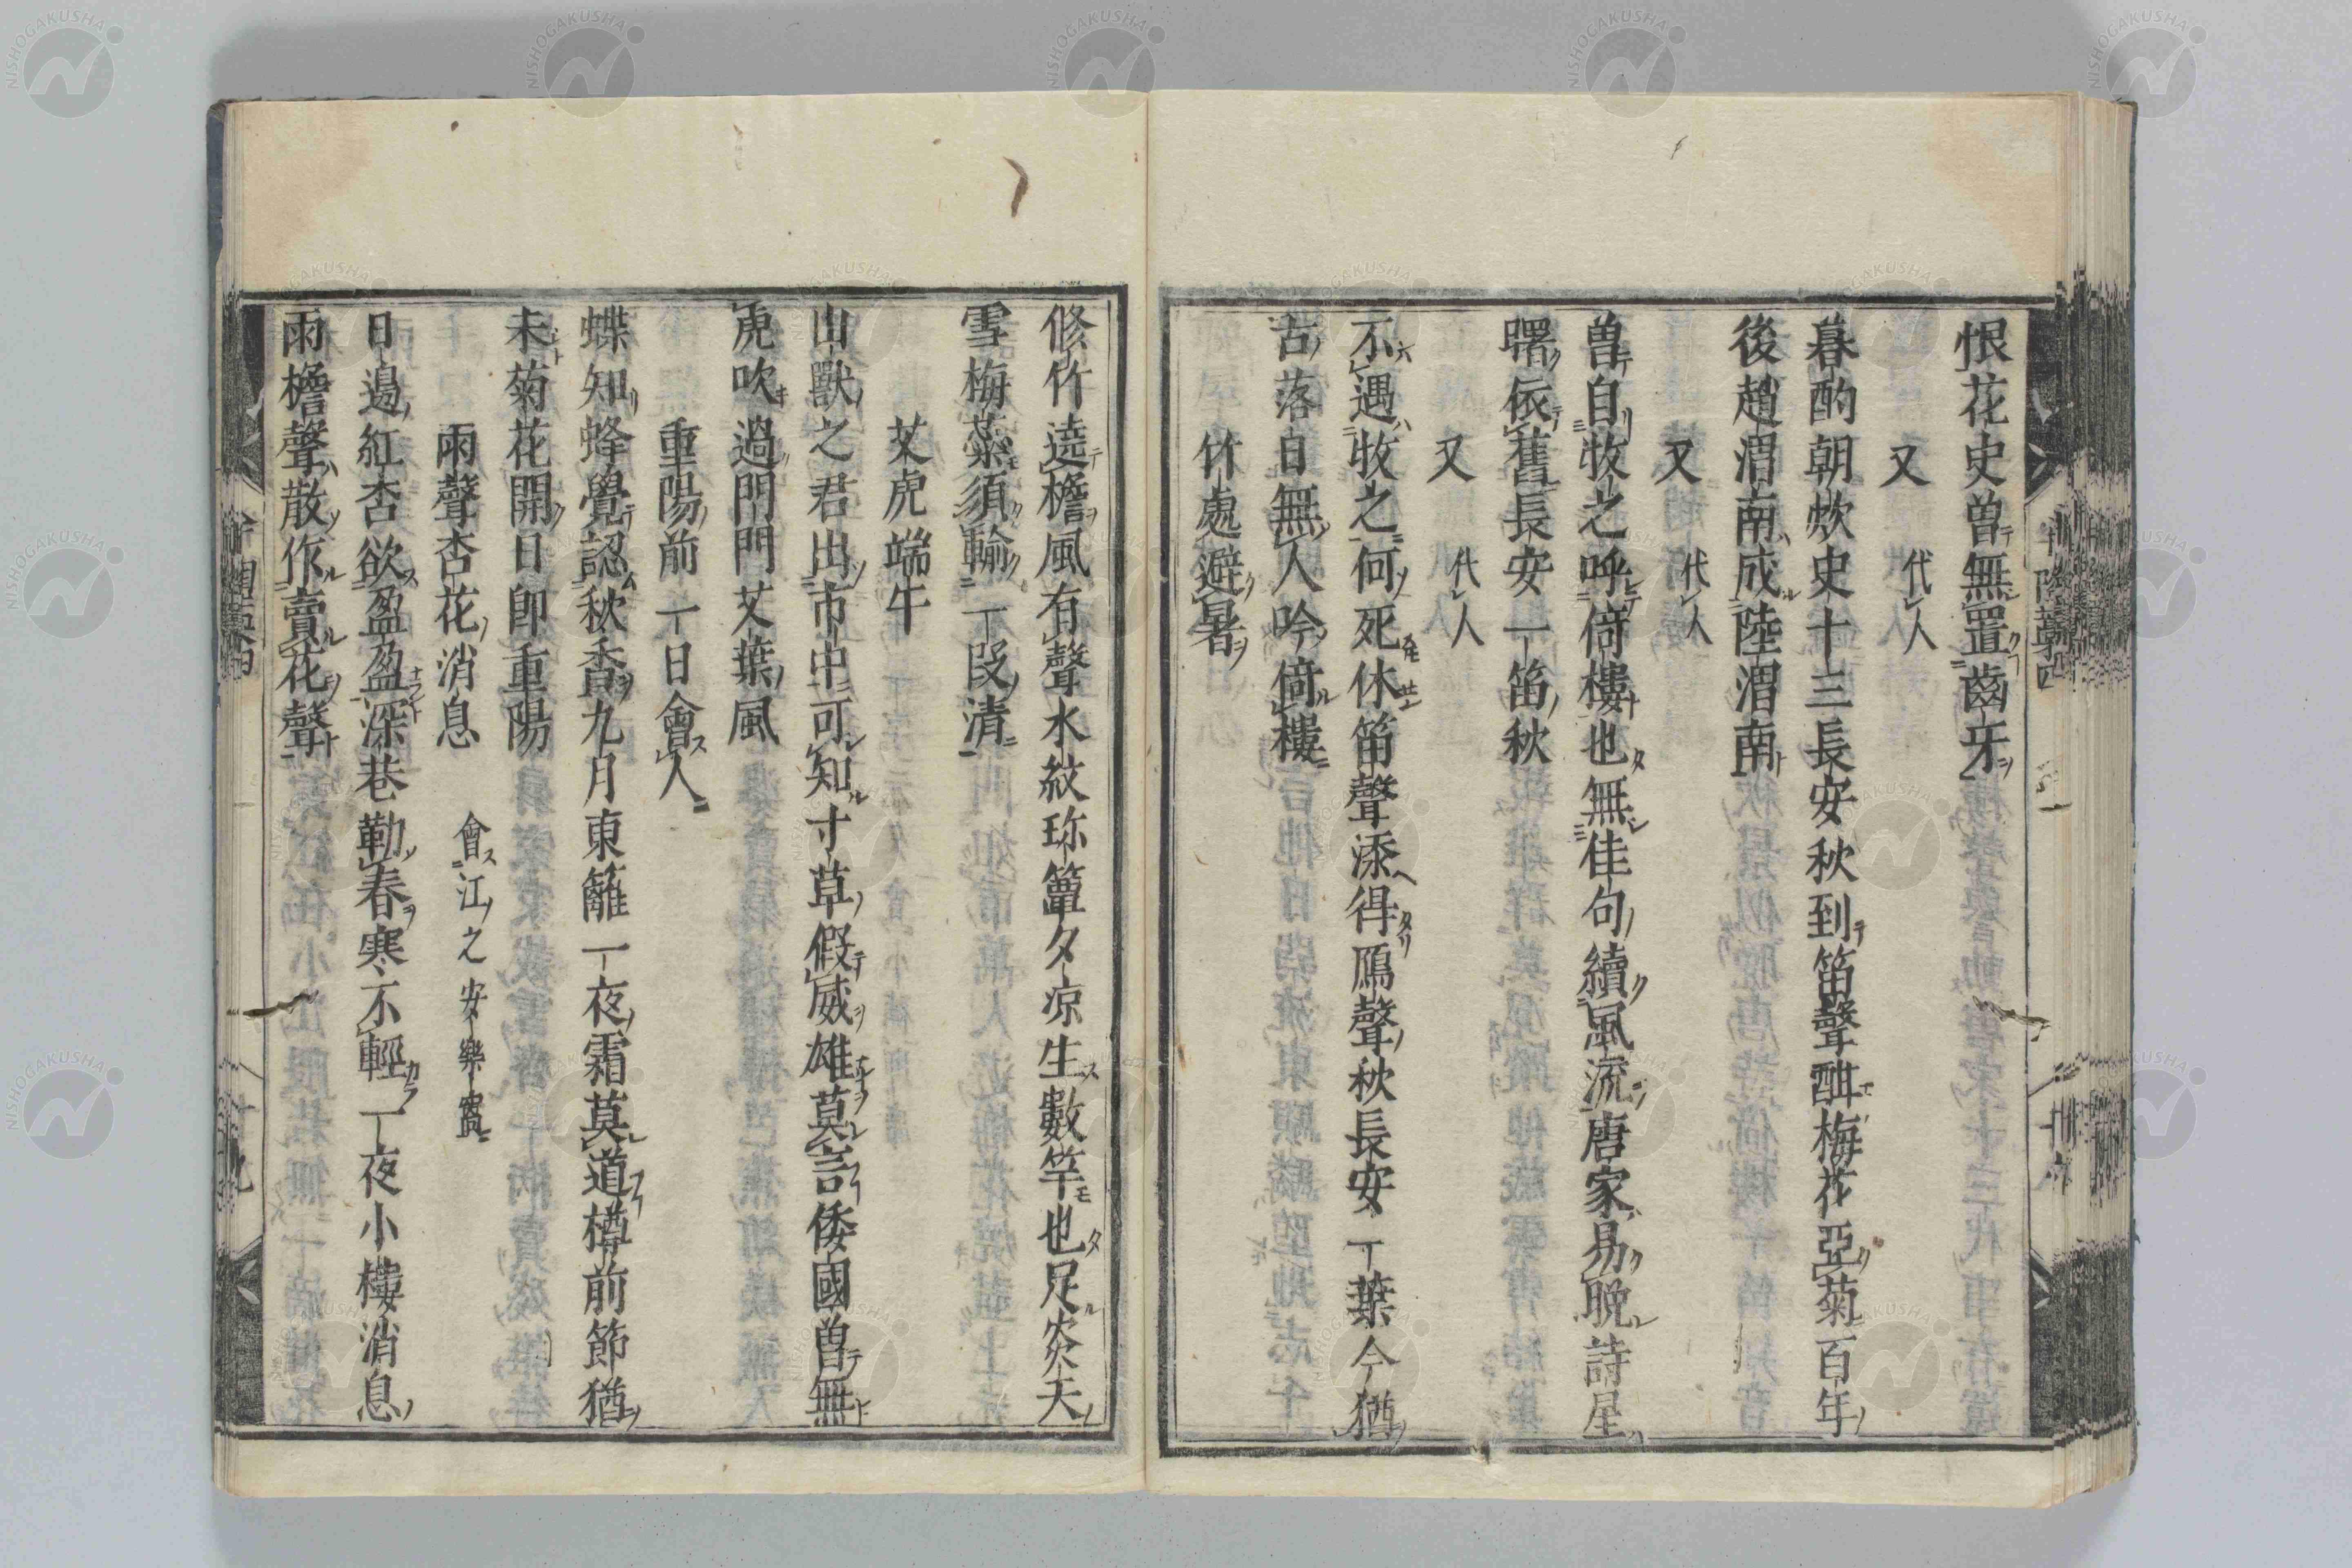 恨花史曽無置齒牙
又　代人
暮酌朝炊史十三長安秋到笛聲酣梅花亞菊百年
後趙渭南成陸渭南
又　代人
曽自牧之呼倚樓也無佳句續風流唐家易晚詩星
曙依舊長安一笛秋
又　代人
不遇牧之何死休笛聲添得鴈聲秋長安一葉今猶
古落日無人吟倚樓
竹處避暑
修竹遶檐風有聲水紋珎簟夕凉生數竿也足炎天
雪梅蘂須輸一段清
艾虎端午
山獸之君出市中可知寸草假威雄莫言倭國曽無
虎吹過門門艾葉風
重陽前一日會人
蝶知蜂覺認秋香九月東籬一夜霜莫道樽前節猶
未菊花開日卽重陽
雨聲杏花消息　會江之安樂窩
日邉紅杏欲盈盈深巷勒春寒不輕一夜小樓消息
雨檐聲散作賣花聲